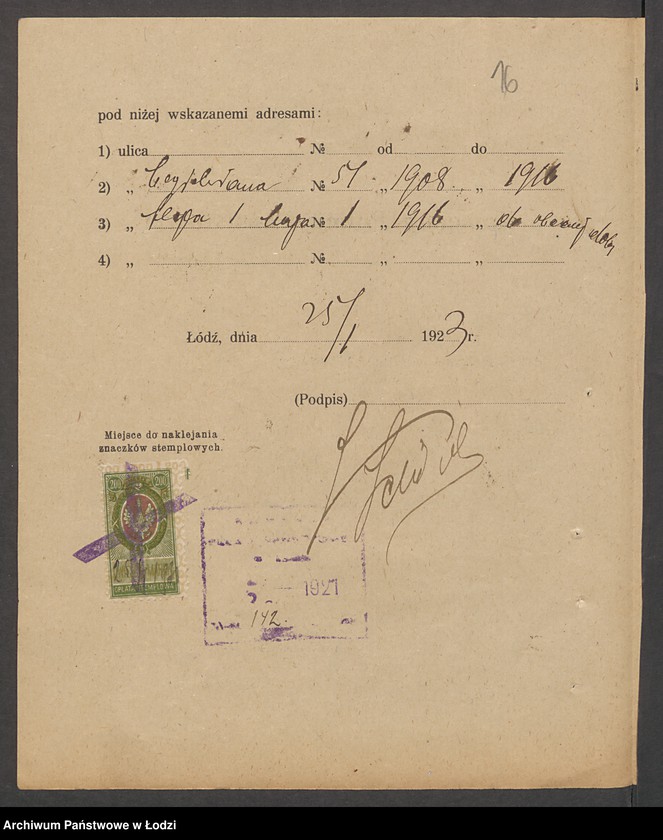 16
pod niżej wskazanemi adresami:
1) ulica № od do
2) „ № 51 „ 1908 „ 1916
3) „ 1 Maja № 1 „ 1916 „ do obecnej doby
4) „ № „ „
Łódź, dnia 25/1 1923 r.
(Podpis)
Miejsce do naklejania
znaczków stemplowych.
200 200
OPŁATA STEMPLOWA
1921
142.
Archiwum Państwowe w Łodzi